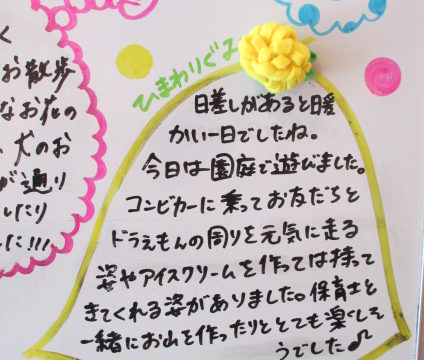 く
お散歩
なお花の
、犬のお
が通り
したり
た!!!
ひまわりぐみ
日差しがあると暖
かい一日でしたね。
今日は園庭で遊びました。
コンビカーに乗ってお友だちと
ドラえもんの周りを元気に走る
姿やアイスクリームを作っては持って
きてくれる姿がありました。保育士と
一緒にお山を作ったりととても楽しそ
うでした♪